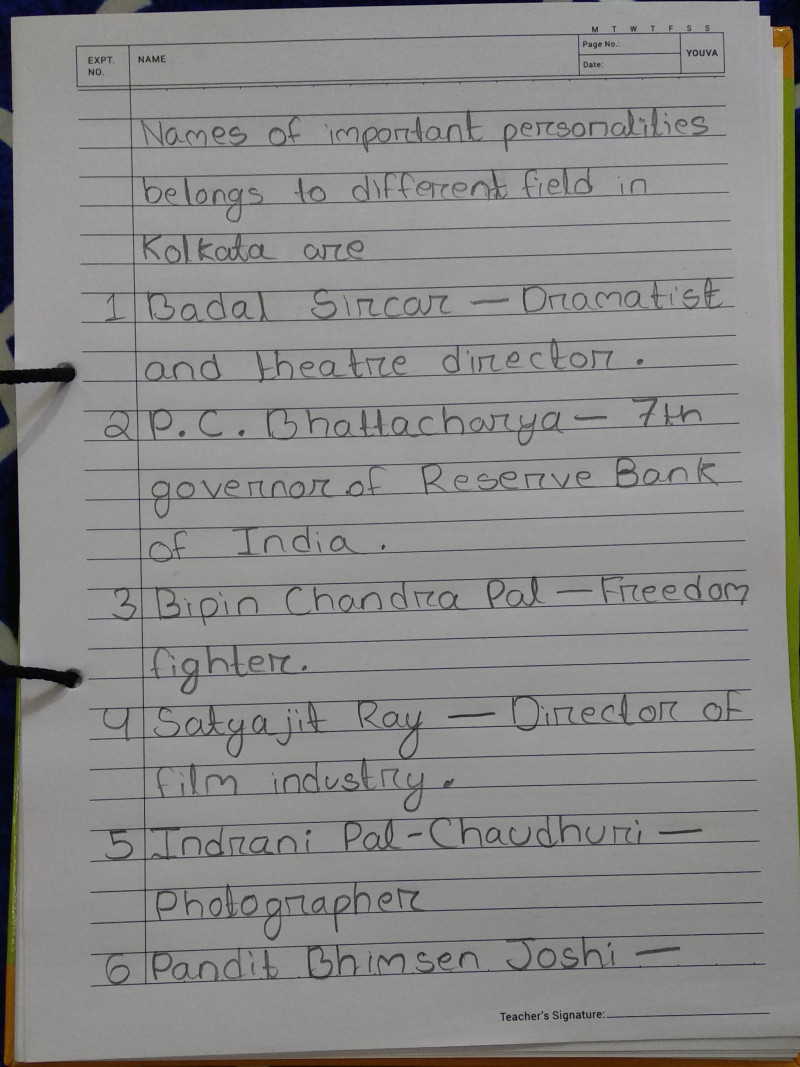 M T W T F S S
EXPT. NO. NAME Page No.: Date: YOUVA
Names of important personalities
belongs to different field in
Kolkata are
1 Badal Sircar — Dramatist
and theatre director.
2 P.C. Bhattacharya — 7th
governor of Reserve Bank
of India.
3 Bipin Chandra Pal — Freedom
fighter.
4 Satyajit Ray — Director of
film industry.
5 Indrani Pal-Chaudhuri —
Photographer
6 Pandit Bhimsen Joshi —
Teacher's Signature: